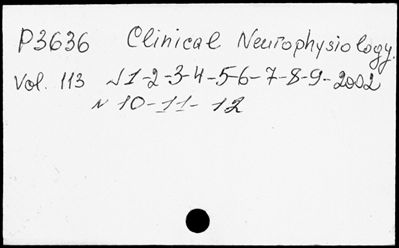 P3636 Clinical Neurophysiology.
Vol. 113 N 1-2-3-4-5-6-7-8-9-2002
N 10-11-12